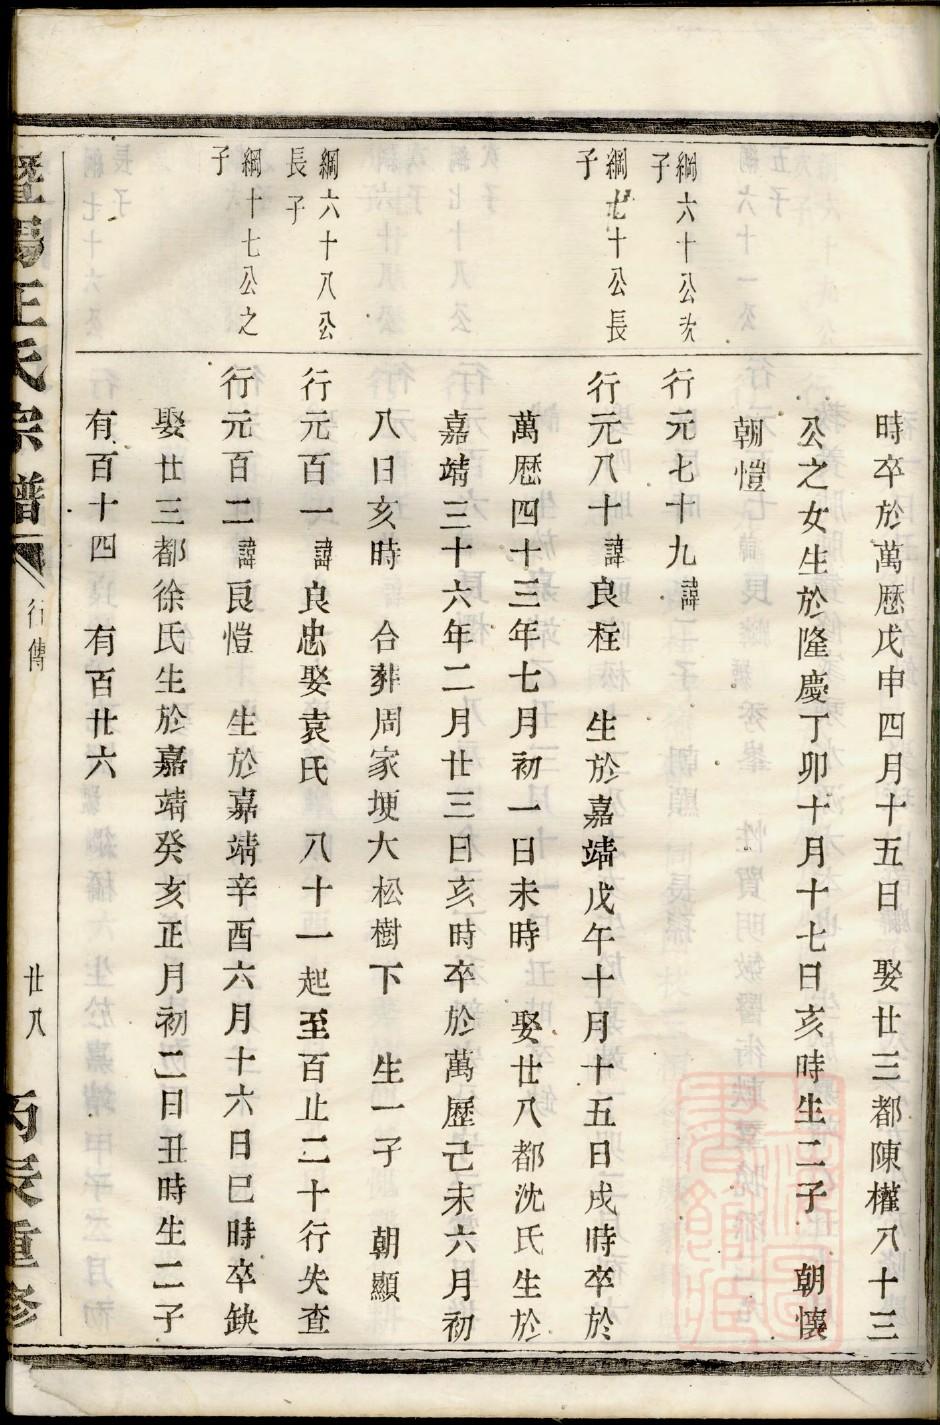 時卒於萬歷戊申四月十五日 娶廿三都陳權八十三
公之女生於隆慶丁卯十月十七日亥時生二子 朝懷
朝愷
綱六十公次
子
行元七十九諱
綱七十公長
子
行元八十諱良栍 生於嘉靖戊午十月十五日戌時卒於
萬歷四十三年七月初一日未時 娶廿八都沈氏生於
嘉靖三十六年二月廿三日亥時卒於萬歷己未六月初
八日亥時 合葬周家埂大松樹下 生一子 朝顯
綱六十八公
長子
行元百一諱良忠娶袁氏 八十一起至百止二十行失查
綱十七公之
子
行元百二諱良愷 生於嘉靖辛酉六月十六日巳時卒缺
娶廿三都徐氏生於嘉靖癸亥正月初二日丑時生二子
有百十四 有百廿六
暨陽王氏宗譜
行傳
廿八
丙辰重修